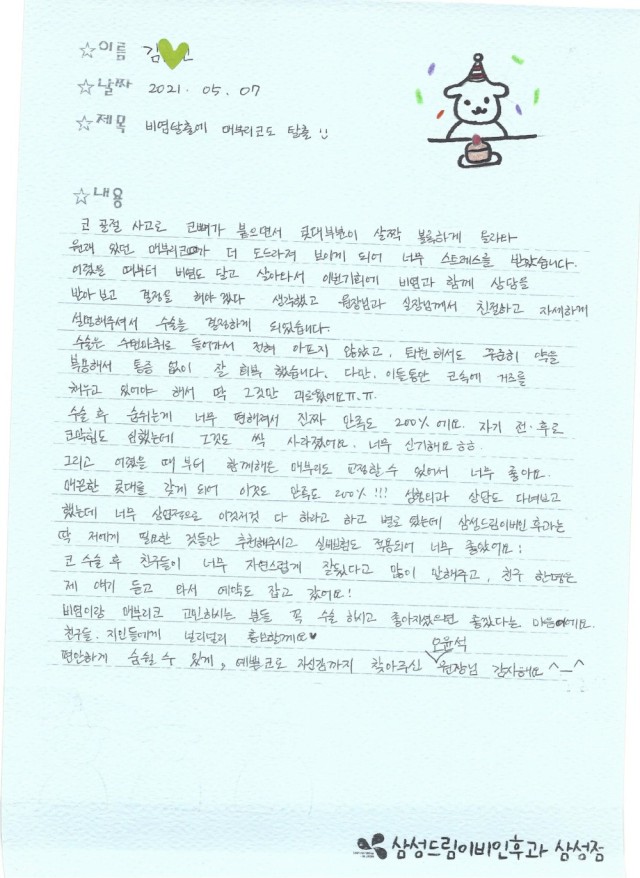 ☆이름 김
☆날짜 2021. 05. 07
☆제목 비염탈출에 매부리코도 탈출
☆내용
코 골절 사고로 코뼈가 붙으면서 콧대부분이 살짝 볼록하게 올라와
원래 있던 매부리코가 더 도드라져 보이게 되어 너무 스트레스를 받았습니다.
어렸을 때부터 비염도 달고 살아와서 이번기회에 비염과 함께 상담을
받아보고 결정을 해야 겠다 생각했고 원장님과 실장님께서 친절하고 자세하게
설명해주셔서 수술을 결정하게 되었습니다.
수술은 수면마취로 들어가서 전혀 아프지 않았고, 퇴원해서도 꾸준히 약을
복용해서 통증 없이 잘 회복 했습니다. 다만, 이틀동안 콧속에 거즈를
채우고 있어야 해서 딱 그것만 괴로웠어요ㅠ.ㅠ.
수술 후 숨쉬는게 너무 편해져서 진짜 만족도 200% 에요. 자기 전·후로
코막힘도 심했는데 그것도 싹 사라졌어요. 너무 신기해요 ㅎㅎ.
그리고 어렸을 때 부터 함께해온 매부리도 교정할 수 있어서 너무 좋아요.
매끈한 콧대를 갖게 되어 이것도 만족도 200% !!! 성형외과 상담도 다녀보고
했는데 너무 상업적으로 이것저것 다 하라고 하고 별로 였는데 삼성드림이비인후과는
딱 저에게 필요한 것들만 추천해주시고 실비보험도 적용되어 너무 좋았어요!
코 수술 후 친구들이 너무 자연스럽게 잘됐다고 많이 말해주고, 친구 한명은
제 얘기 듣고 와서 예약도 잡고 갔어요!
비염이랑 매부리코 고민하시는 분들 꼭 수술 하시고 좋아지셨으면 좋겠다는 마음이에요.
친구들, 지인들에게 널리널리 홍보할게요♥
편안하게 숨쉴 수 있게, 예쁜코로 자신감까지 찾아주신 모윤석 원장님 감사해요 ^ㅡ^
삼성드림이비인후과 삼성점